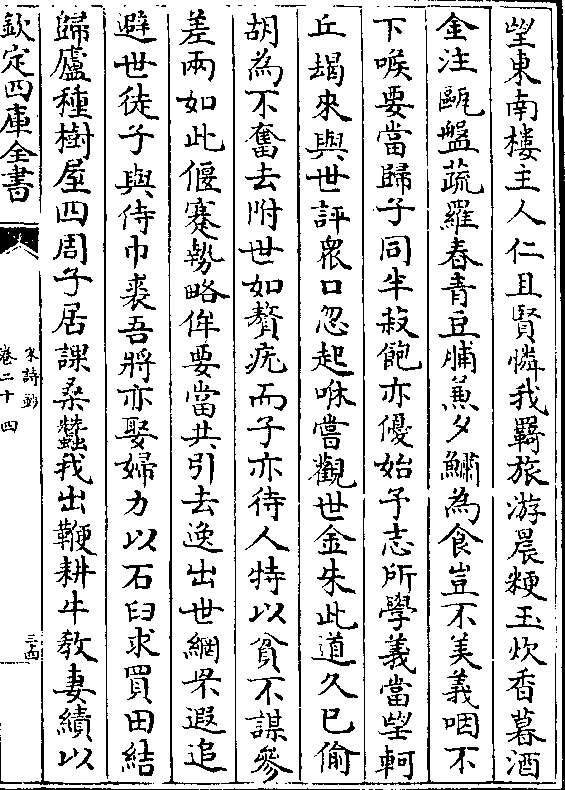 望東南樓主人仁且賢憐我羇旅游晨粳玉炊香暮酒
金注甌盤蔬羅春青豆脯薫夕鱐為食豈不美義咽不
下喉要當歸子同半菽飽亦優始予志所學義當望軻
丘朅來與世評衆口忽起咻嘗觀世金朱此道久已偷
胡為不奮去附世如贅疣而子亦待人特以貧不謀參
差兩如此偃蹇勢略侔要當共引去逸出世網罘遐追
避世徒子與侍巾裘吾將亦娶婦力以石臼求買田結
歸廬種樹屋四周子居課桑蠶我出鞭耕牛教妻績以
欽定四庫全書
宋詩鈔
卷二十四